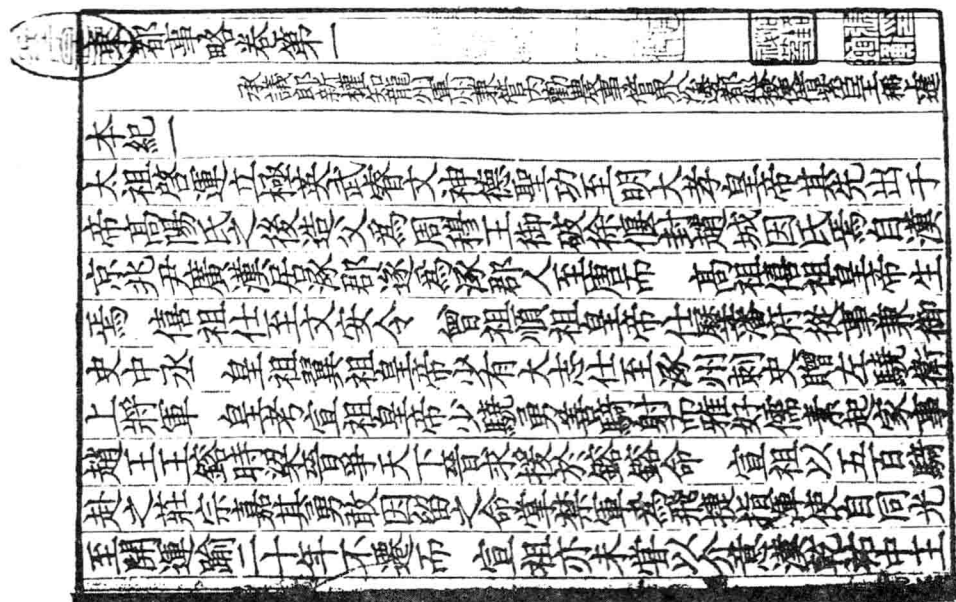 東都事略卷第一
承議郎新權知龍州軍州兼管內勸農事管界沿邊都巡檢使借紫臣王稱進
本紀一
太祖啓運立極英武睿文神德聖功至明大孝皇帝其先出于
帝高陽氏之後造父爲周穆王御破徐偃封趙城因氏焉自漢
京兆尹廣漢居涿郡遂爲涿郡人至唐而 高祖僖祖皇帝生
焉 僖祖仕至文安令 曾祖順祖皇帝仕歷藩府從事兼御
史中丞 皇祖翼祖皇帝少有大志仕至涿州刺史贈左驍衛
上將軍 皇考宣祖皇帝少驍勇善騎射而雅好儒素起家事
趙王王鎔時梁晉爭天下晉求援於鎔鎔命 宣祖以五百騎
赴之莊宗嘉其勇敢因留之命董禁軍爲飛捷指揮使自同光
至開運踰二十年不遷而 宣祖亦未嘗以介意漢乾祐中王